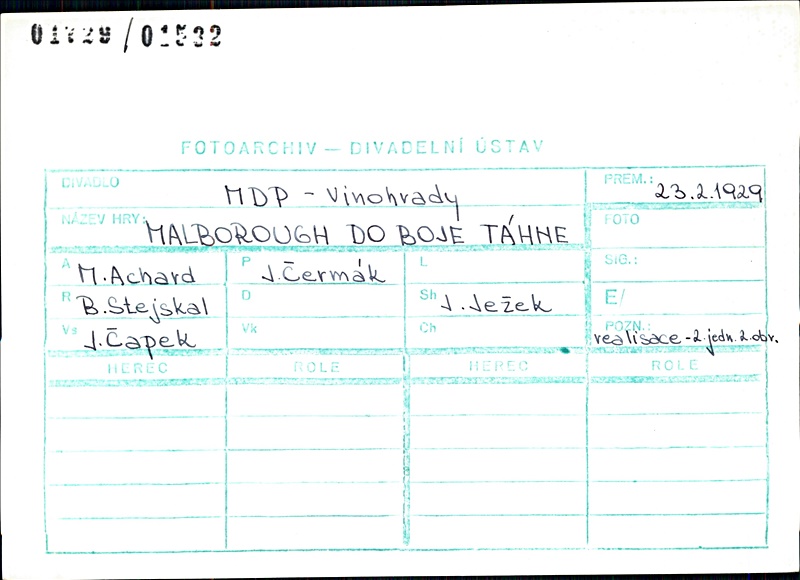 01729/01532
FOTOARCHIV — DIVADELNÍ ÚSTAV
DIVADLO MDP - Vinohrady PREM.: 23.2.1929
NÁZEV HRY: MALBOROUGH DO BOJE TÁHNE FOTO
A M.Achard P J.Čermák L SIG.:
R B.Stejskal D Sh J.Ježek E/
Vs J.Čapek Vk Ch POZN.: realisace-2.jedn.2.obr.
HEREC ROLE HEREC ROLE